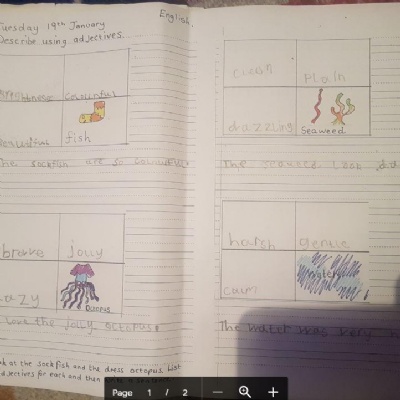 English
Tuesday 19th January
Describe using adjectives.
colourful
beautiful
fish
The sockfish are so colourful
jolly
lazy
Octopus
love the jolly octopus
at the sockfish and the dress octopus. List
adjectives for each and then write a sentence.
clean
Plain
dazzling
Seaweed
The
harsh
gentle
calm
water
The water was very
Page 1 / 2